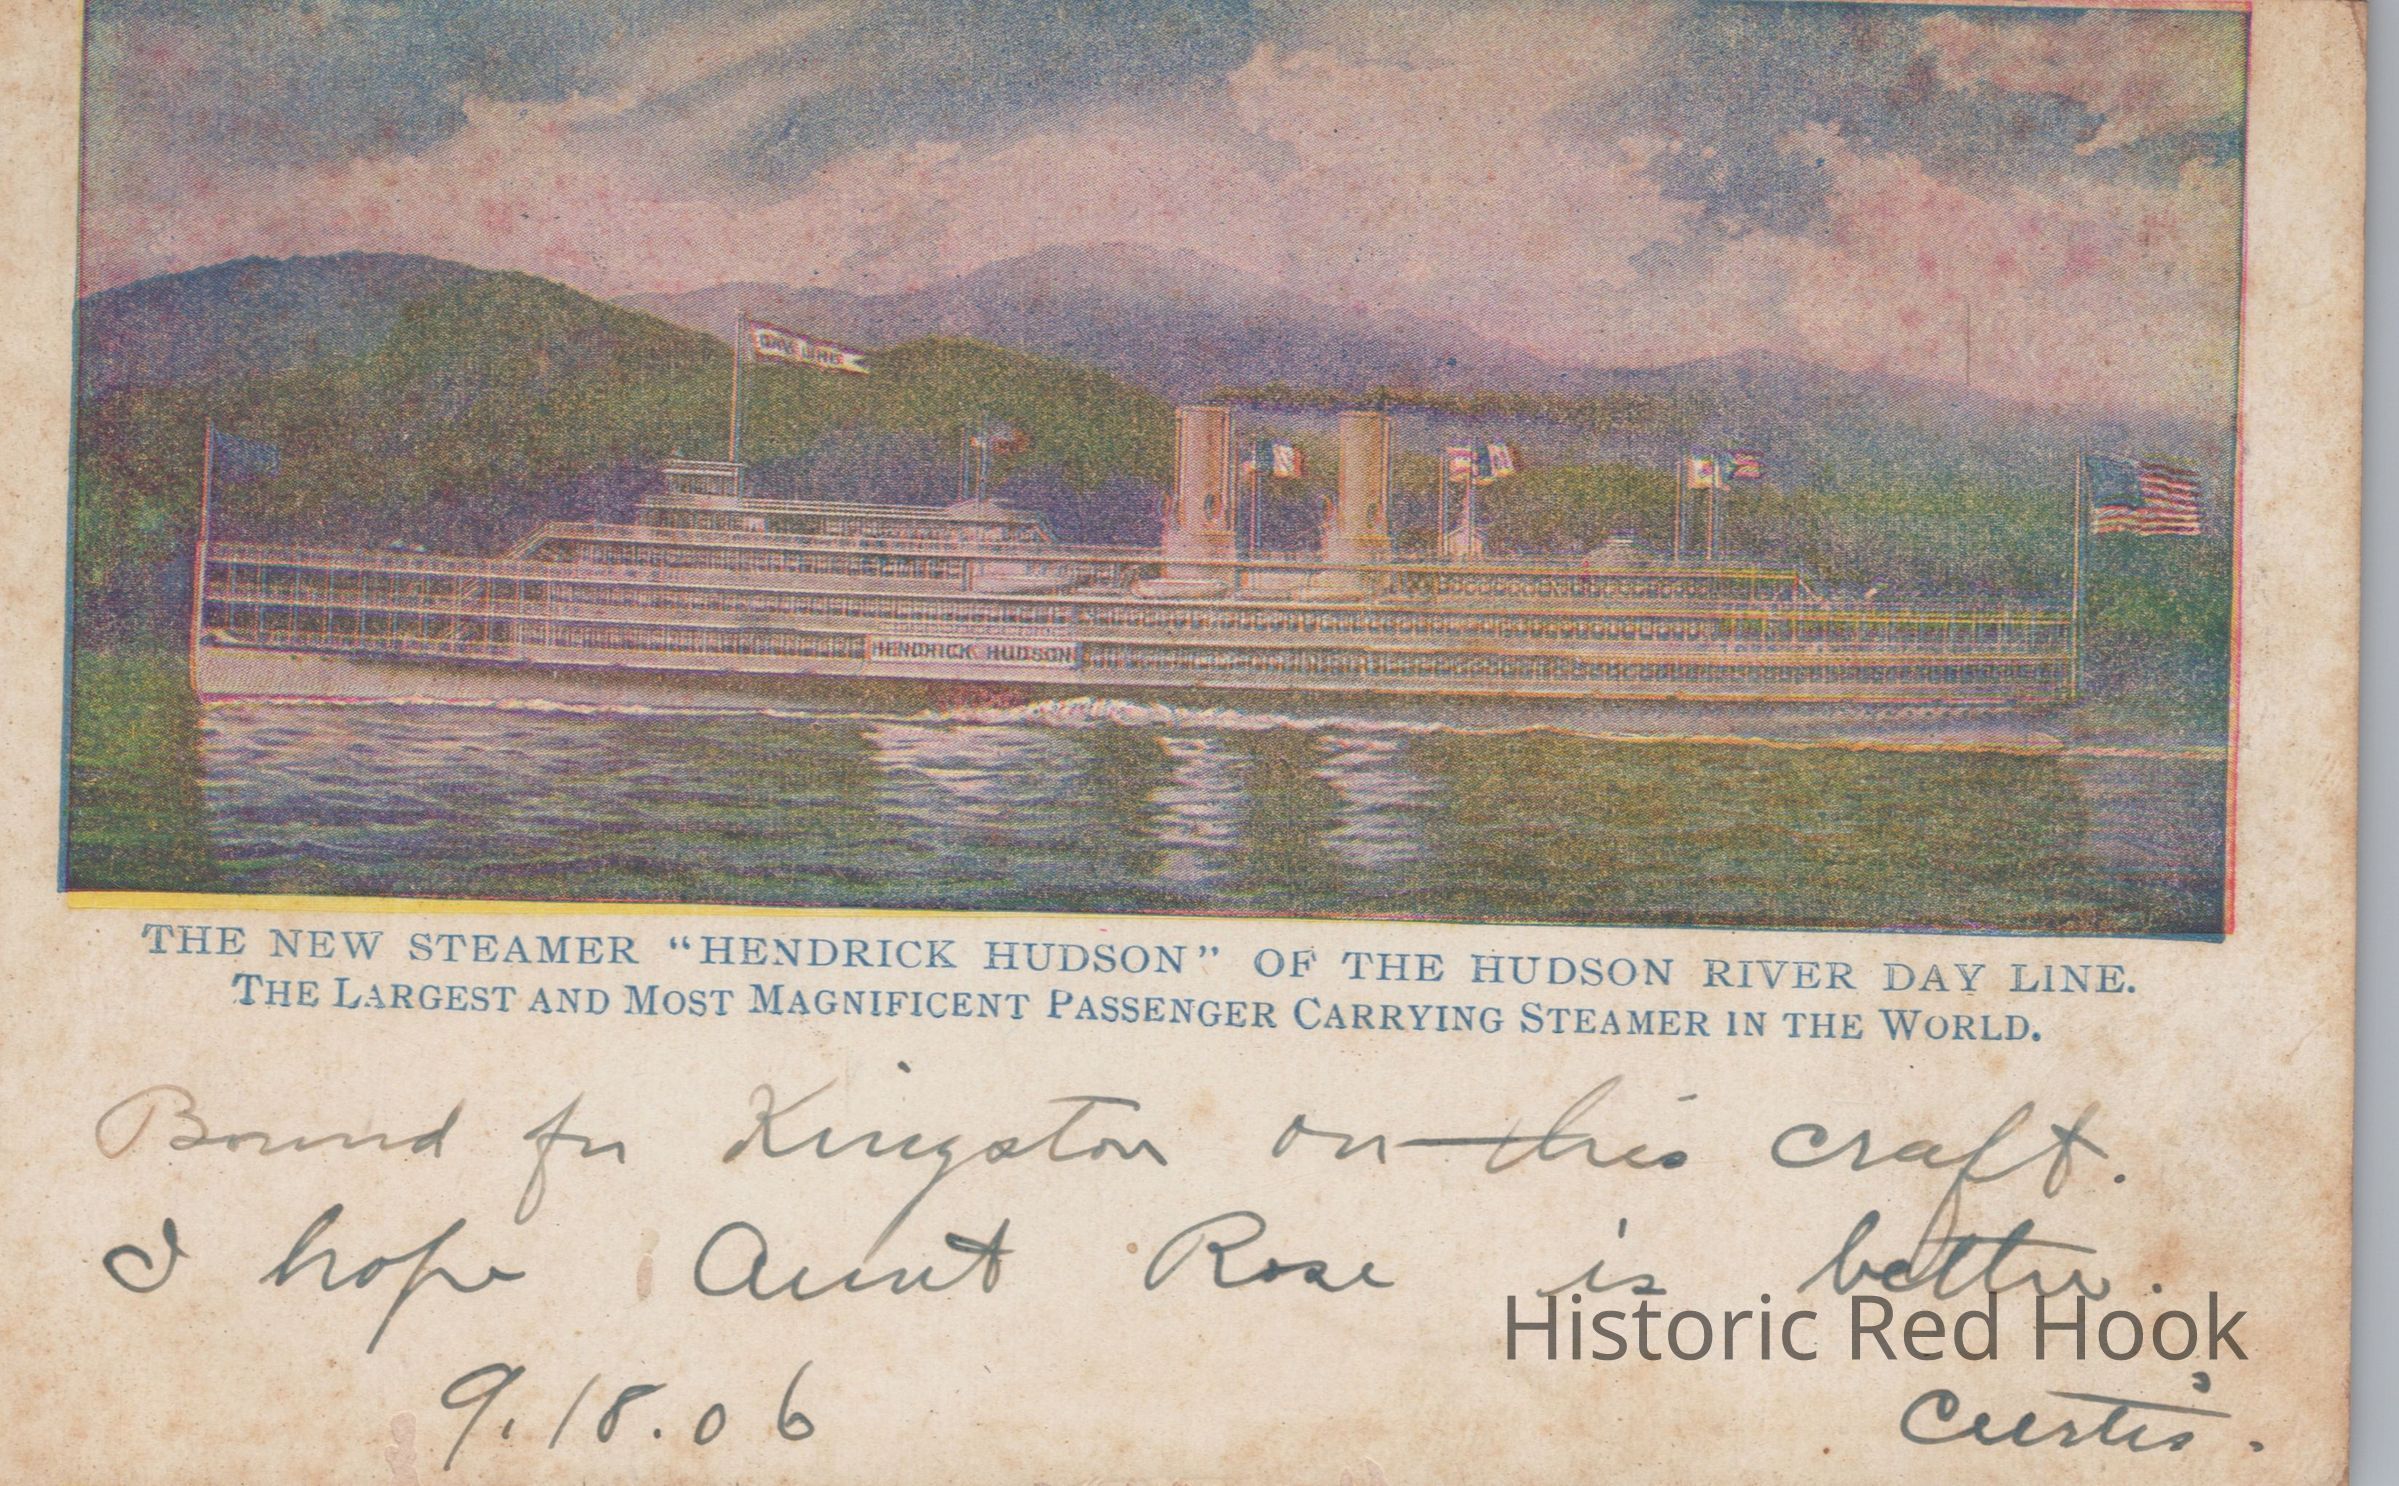 DAY LINE
HENDRICK HUDSON
THE NEW STEAMER "HENDRICK HUDSON" OF THE HUDSON RIVER DAY LINE.
THE LARGEST AND MOST MAGNIFICENT PASSENGER CARRYING STEAMER IN THE WORLD.
Bound for Kingston on this craft.
I hope Aunt Rose is better.
Historic Red Hook
9.18.06
Curtis.